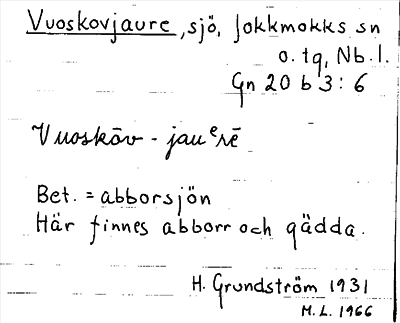 Vuoskovjaure, sjö, Jokkmokks sn
o. tg, Nb. l.
Gn 20 b 3 : 6
Vuoskōv - jauᵉrē
Bet. = abborsjön
Här finnes abborr och gädda.
H. Grundström 1931
M.L. 1966